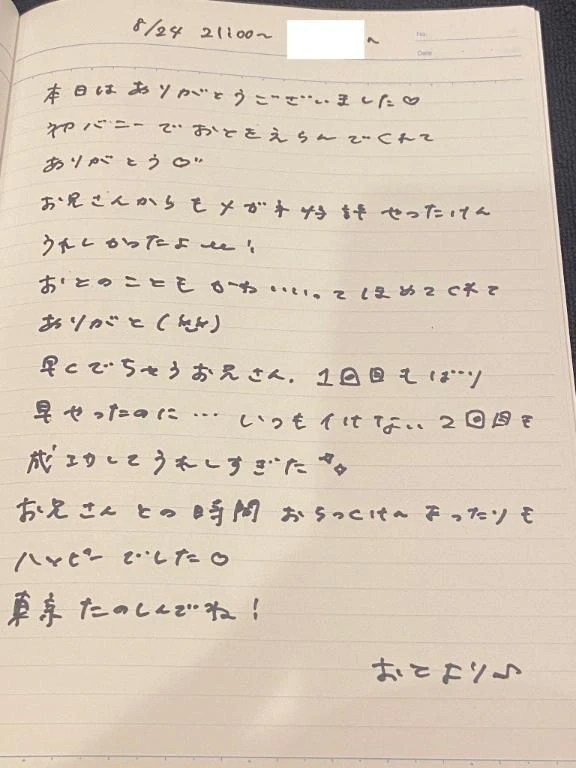 8/24 21:00〜 〜
No.
Date
本日はありがとうございました♡
初バニーでおとをえらんでくれて
ありがとう♡"
お兄さんからもメガネ好評やったけん
うれしかったよ!
おとのこともかわいいってほめてくれて
ありがと(
早くでちゃうお兄さん、1回目もばり
早やったのに… いつもイけてない2回目も
成功してうれしすぎた
お兄さんとの時間 おちつくけ〜まったりも
ハッピーでした♡
東京たのしんでね!
おとより♪